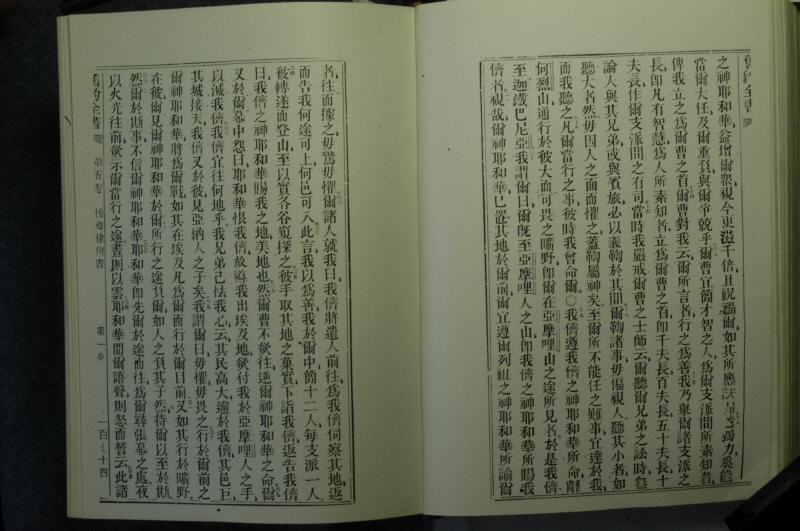 舊約全書
之神耶和華益增爾眾視今更滋千倍且祝福爾如其所應許
當爾大任及爾重負與爾爭競乎爾曹宜簡才智之人為爾支派間所素知者
俾我立為爾曹之首爾曹對我云爾所言者行之為善我乃舉爾諸支派之
長即凡有智慧為人所素知者立為爾曹之首即千夫長百夫長五十夫長十
夫長作爾支派間之有司當時我嚴戒爾曹之士師云爾聽爾兄弟之訟時
論人與其兄弟或與賓旅必以義鞫於其間爾鞫諸事毋偏視人聽其小者如
聽大者然毋因人之面而懼之蓋鞫屬神矣至爾所不能任之難事宜達於我
而我聽之凡爾當行之事彼時我曾命爾○我儕遵我儕之神耶和華所命
何烈山通行於彼大而可畏之曠野即爾在亞摩哩山之途所見者於是我儕
至迦鐵巴尼亞我謂爾曰爾既至亞摩哩人之山即我儕之神耶和華所賜我
儕者視哉爾神耶和華已置其地於爾前爾宜遵爾列祖之神耶和華所諭爾
者往而據之毋驚毋懼爾諸人就我曰我儕將遣人前往為我儕伺察其地返
而告我何途可上何邑可入此言我以為善我於爾中簡十二人每支派一人
彼轉遂而登山至以實各谷窺探之彼手取其地之菓實下詣我儕返告我儕
曰我儕之神耶和華賜我之地美地也然爾曹不欲往逆爾神耶和華之命爾
又於爾幕中怨曰耶和華恨我儕故導我出埃及地欲付我於亞摩哩人之手
以滅我儕我儕宜往何地乎我兄弟已怯我心云其民高大逾於我儕其邑巨
其城接天我儕又於彼見亞納人之子矣我謂爾曰毋懼毋畏之行於爾前之
爾神耶和華將為爾戰如其在埃及凡為爾面行於爾目前又如其行於曠野
在彼爾見爾神耶和華於爾所行之途負爾如人之負其子然待爾以至於斯
然爾於斯事不信爾神耶和華耶和華即先爾於途而往為爾尋張幕之處夜
以火光往前欲示爾當行之途晝則以雲耶和華聞爾語聲則怒而誓云此諸
舊約全書 第五卷 復傳律例書 第一章 一百七十四